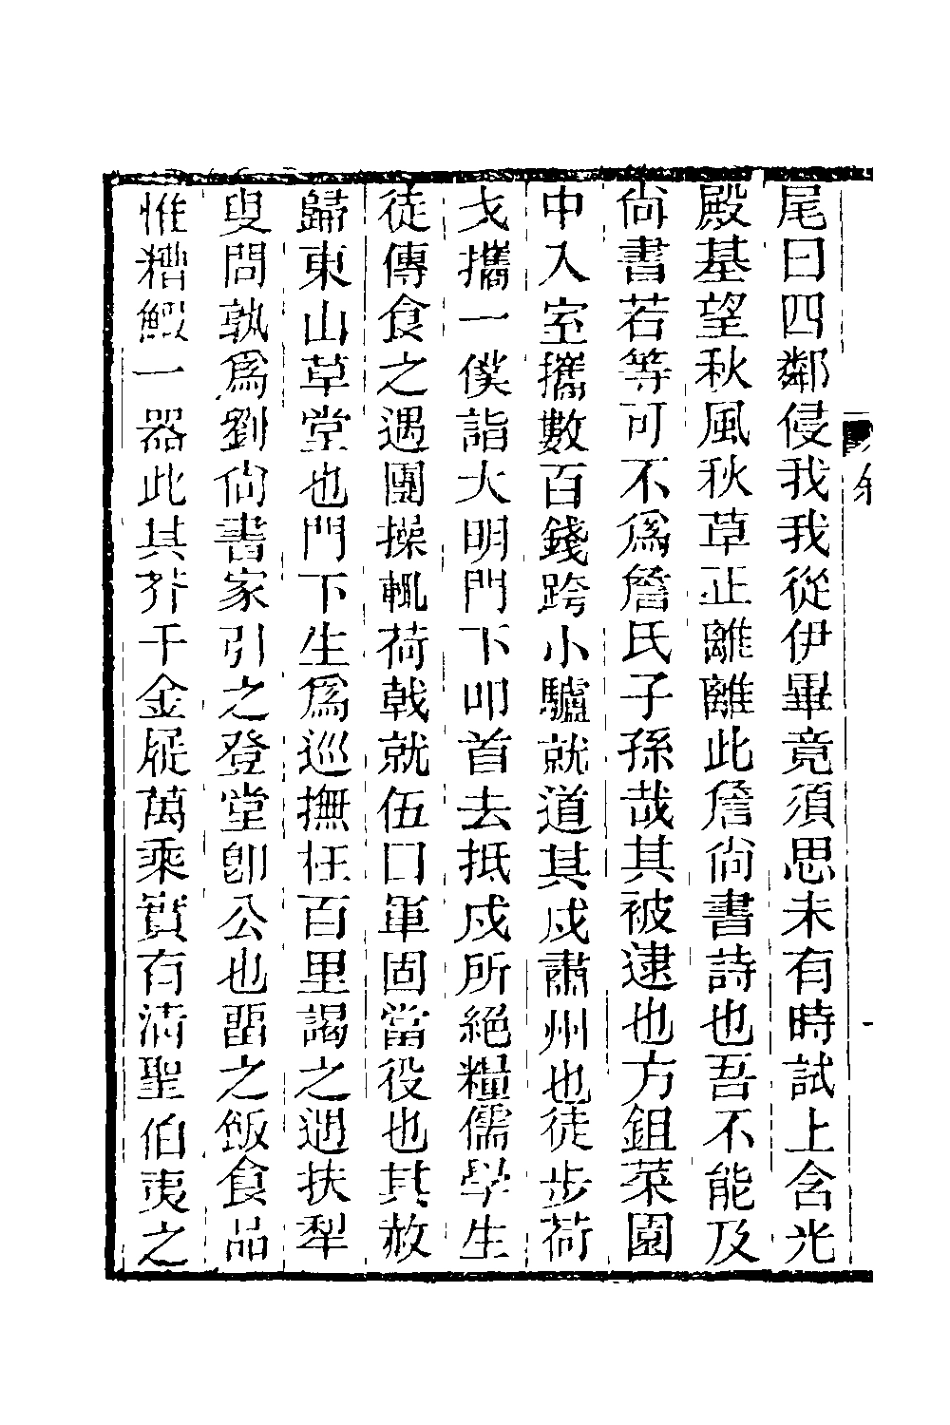 尾曰四鄰侵我我從伊畢竟須思未有時試上含光
殿基望秋風秋草正離離此詹尙書詩也吾不能及
尙書若等可不爲詹氏子孫哉其被逮也方鉏菜園
中入室攜數百錢跨小驢就道其戍肅州也徒步荷
戈攜一僕詣大明門下叩首去抵戍所絕糧儒學生
徒傳食之遇團操輒荷戟就伍曰軍固當役也其赦
歸東山草堂也門下生爲巡撫枉百里謁之遇扶犁
叟問孰爲劉尙書家引之登堂卽公也畱之飯食品
惟糟鰕一器此其芥千金屣萬乘實有淸聖伯夷之